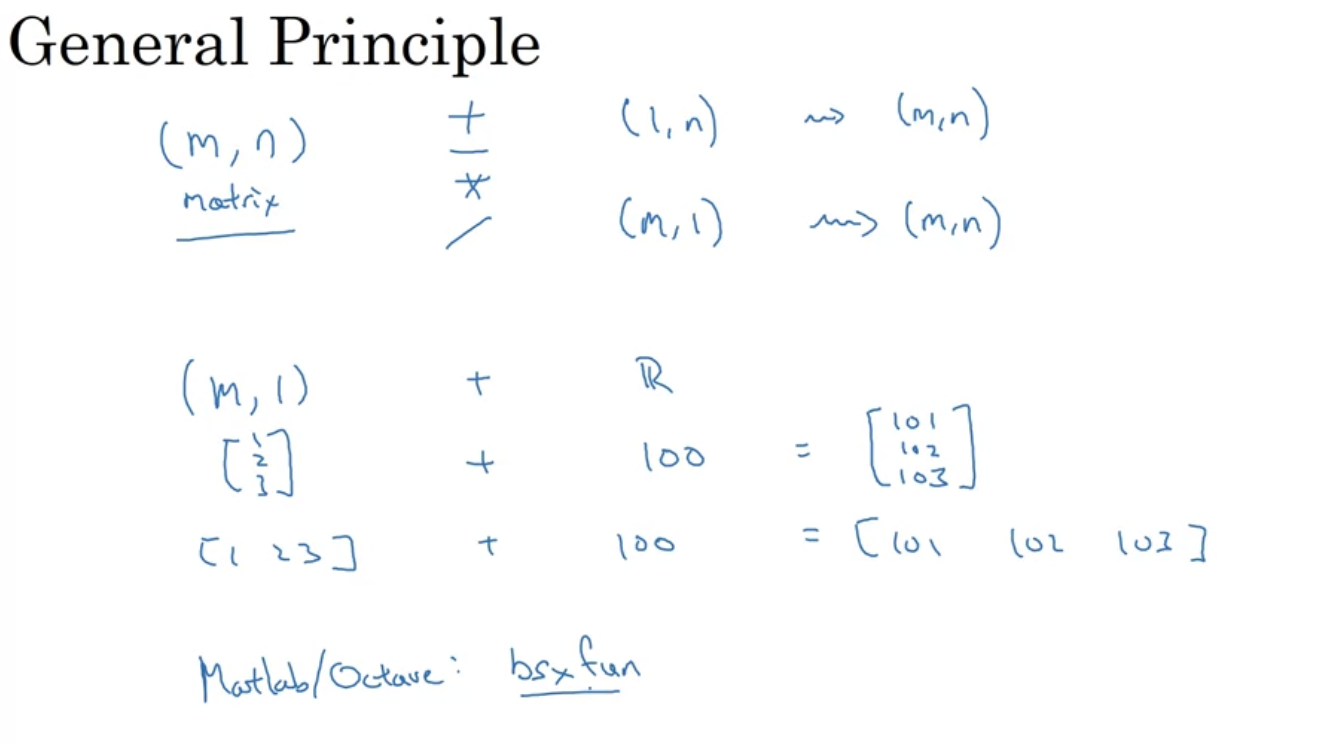 General Principle
(m, n) + (1, n) ⇝ (m,n)
matrix - *
/ (m, 1) ⇝ (m,n)
(m, 1) + ℝ
[1 2 3] + 100 = [101 102 103]
[1 2 3] + 100 = [101 102 103]
Matlab/Octave: bsxfun